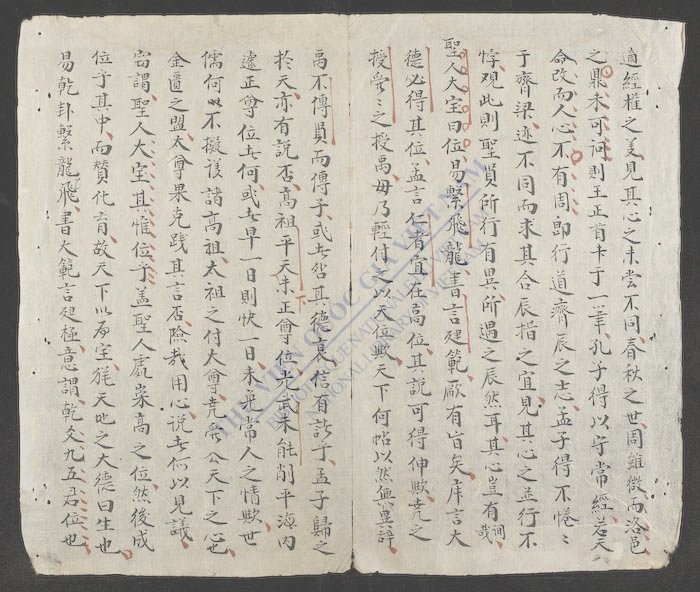 適經權之美見其心之未嘗不同春秋之世周雖微而洛邑
之鼎未可问則王正首丰于一筆孔子得以守常經若天
命改而人心不有周即行道濟辰之志孟子得不惓〻
于齊梁迹不同而求其合辰措之宜見其心之並行不
悖观此則聖賢所行有異所遇之辰然耳其心豈有
间哉
聖人大宝曰位易繫飛龍書言建範厥有旨矣斥言大
德必得其位盖言仁者宜在高位其說可得伸歟尭之
授舜舜之授禹毋乃輕付之以天位歟天下何帖以然無異辞
禹不傳賢而傳子或者咎其德衰信有諸乎孟子歸之
於天亦有說否高祖平天下未正尊位光武未能削平海内
遽正尊位者何或者早一日則快一日未免常人之情歟世
儒何以不擬議諸高祖太祖之付大尊尭舜公天下之心也
金匱之盟太尊果克践其言否險哉用心说者何以見議
窃謂聖人大宝其惟位乎盖聖人處崇高之位然後成
位乎其中而賛化育故天下以為宝旄天地之大德曰生也
易乾卦繫龍飛書大範言建極意謂乾爻九五君位也
THƯ VIỆN QUỐC GIA VIỆT NAM